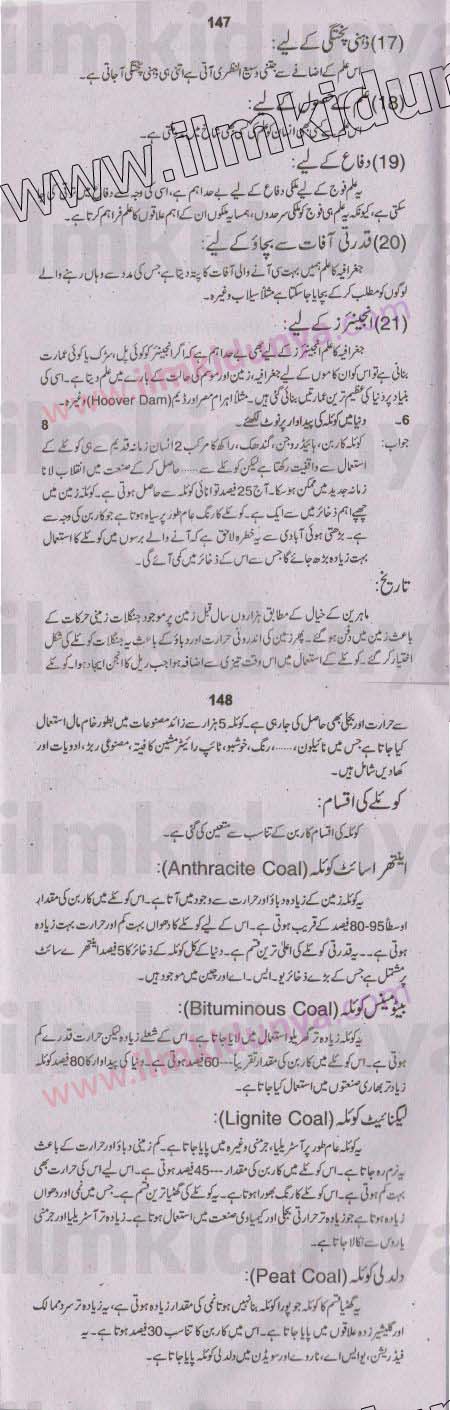 147
(17) ذہنی پختگی کے لیے:
اس علم کے اضافے سے جتنی وسیع النظری آتی ہے اتنی ہی ذہنی پختگی آ جاتی ہے۔
(18) علم کے حصول کے لیے:
(19) دفاع کے لیے:
یہ علم فوج کے لیے ملکی دفاع کے لیے بے حد اہم ہے، اسی کی وجہ سے دفاع میں
سکتی ہے، کیونکہ یہ علم ہی فوج کو ملکی سرحدوں، ہمسایہ ملکوں ان کے اہم علاقوں کا علم فراہم کرتا ہے۔
(20) قدرتی آفات سے بچاؤ کے لیے:
جغرافیہ کا علم ہمیں بہت سی آنے والی آفات کا پتہ دیتا ہے جس کی مدد سے وہاں رہنے والے
لوگوں کو مطلب کر کے بچایا جا سکتا ہے مثلاً سیلاب وغیرہ۔
(21) انجینئرز کے لیے:
جغرافیہ کا علم انجینئرز کے لیے بھی بے حد اہم ہے کہ اگر انجینئر کو کوئی پل، سڑک یا کوئی عمارت
بنانی ہے تو اس کو ان کاموں کے لیے جغرافیہ، زمین اور موسم کی حالت کے بارے میں علم دیتا ہے۔ اسی کی
بنیاد پر دنیا کی عظیم ترین عمارتیں بنائی گئی ہیں۔ مثلاً اہرام مصر اور ڈیم (Hoover Dam) وغیرہ۔
6۔ دنیا میں کوئلہ کی پیداوار پر نوٹ لکھئے۔ 8
جواب: کوئلہ کاربن، ہائیڈروجن، گندھک، راکھ کا مرکب 2 انسان زمانہ قدیم سے ہی کوئلے کے
استعمال سے واقفیت رکھتا ہے لیکن کوئلے سے ...... حاصل کر کے صنعت میں انقلاب لانا
زمانہ جدید میں ممکن ہو سکا۔ آج 25 فیصد توانائی کوئلہ سے حاصل ہوتی ہے۔ کوئلہ زمین میں
چھپے اہم ذخائر میں سے ایک ہے۔ کوئلے کا رنگ عام طور پر سیاہ ہوتا ہے جو کاربن کی وجہ سے
ہے۔ بڑھتی ہوئی آبادی سے یہ خطرہ لاحق ہے کہ آنے والے برسوں میں کوئلے کا استعمال
بہت زیادہ بڑھ جائے گا جس سے اس کے ذخائر میں کمی آئے گی۔
تاریخ:
ماہرین کے خیال کے مطابق ہزاروں سال قبل زمین پر موجود جنگلات زمینی حرکات کے
باعث زمین میں دفن ہو گئے۔ پھر زمین کی اندرونی حرارت اور دباؤ کے باعث یہ جنگلات کوئلے کی شکل
اختیار کر گئے۔ کوئلے کے استعمال میں اس وقت تیزی سے اضافہ ہوا جب ریل کا انجن ایجاد ہوا۔ کوئلے
148
سے حرارت اور بجلی بھی حاصل کی جا رہی ہے۔ کوئلہ 5 ہزار سے زائد مصنوعات میں بطور خام مال استعمال
کیا جاتا ہے جس میں نائیلون، ......، رنگ، خوشبو، ٹائپ رائیٹر مشین کا فیتہ، مصنوعی ربڑ، ادویات اور
کھادیں شامل ہیں۔
کوئلے کی اقسام:
کوئلہ کی اقسام کاربن کے تناسب سے متعین کی گئی ہے۔
اینتھراسائٹ کوئلہ (Anthracite Coal):
یہ کوئلہ زمین کے زیادہ دباؤ اور حرارت سے وجود میں آتا ہے۔ اس کوئلے میں کاربن کی مقدار
اوسطاً 95-80 فیصد کے قریب ہوتی ہے۔ اس کے لیے کوئلے کا دھواں بہت کم اور حرارت بہت زیادہ
ہوتی ہے۔۔ یہ قدرتی کوئلے کی اعلیٰ ترین قسم ہے۔ دنیا کے کل کوئلہ کے ذخائر کا 5 فیصد اینتھرے سائٹ
پر مشتمل ہے جس کے بڑے ذخائر یو۔ ایس۔ اے اور چین میں موجود ہیں۔
بیٹومینس کوئلہ (Bituminous Coal):
یہ کوئلہ زیادہ تر گھریلو استعمال میں لایا جاتا ہے۔ اس کے شعلے زیادہ لیکن حرارت قدرے کم
ہوتی ہے۔ اس کوئلے میں کاربن کی مقدار تقریباً ---60 فیصد ہوتی ہے۔ دنیا کی پیداوار کا 80 فیصد کوئلہ
زیادہ تر بھاری صنعتوں میں استعمال کیا جاتا ہے۔
لیگنائیٹ کوئلہ (Lignite Coal):
یہ کوئلہ عام طور پر آسٹریلیا، جرمنی وغیرہ میں پایا جاتا ہے۔ کم زمینی دباؤ اور حرارت کے باعث
یہ نرم رہ جاتا ہے۔ اس کوئلے میں کاربن کی مقدار ---45 فیصد ہوتی ہے۔ اس لیے اس کی حرارت بھی
بہت کم ہوتی ہے۔ اس کوئلے کا رنگ بھورا ہوتا ہے۔ یہ کوئلے کی گھٹیا ترین قسم ہے۔ جس میں نمی اور دھواں
زیادہ ہوتا ہے جو زیادہ تر حرارتی بجلی اور کیمیاوی صنعت میں استعمال ہوتا ہے۔ زیادہ تر آسٹریلیا اور جرمنی
یا روس سے نکالا جاتا ہے۔
دلدلی کوئلہ (Peat Coal):
یہ گھٹیا قسم کا کوئلہ جو پورا کوئلہ بنا نہیں ہوتا نمی کی مقدار زیادہ ہوتی ہے، یہ زیادہ تر سرد ممالک
اور گلیشیر زدہ علاقوں میں پایا جاتا ہے۔ اس میں کاربن کا تناسب 30 فیصد ہوتا ہے۔ یہ
فیڈریشن، یو ایس اے، ناروے اور سویڈن میں دلدلی کوئلہ پایا جاتا ہے۔
www.ilmkidunya.com